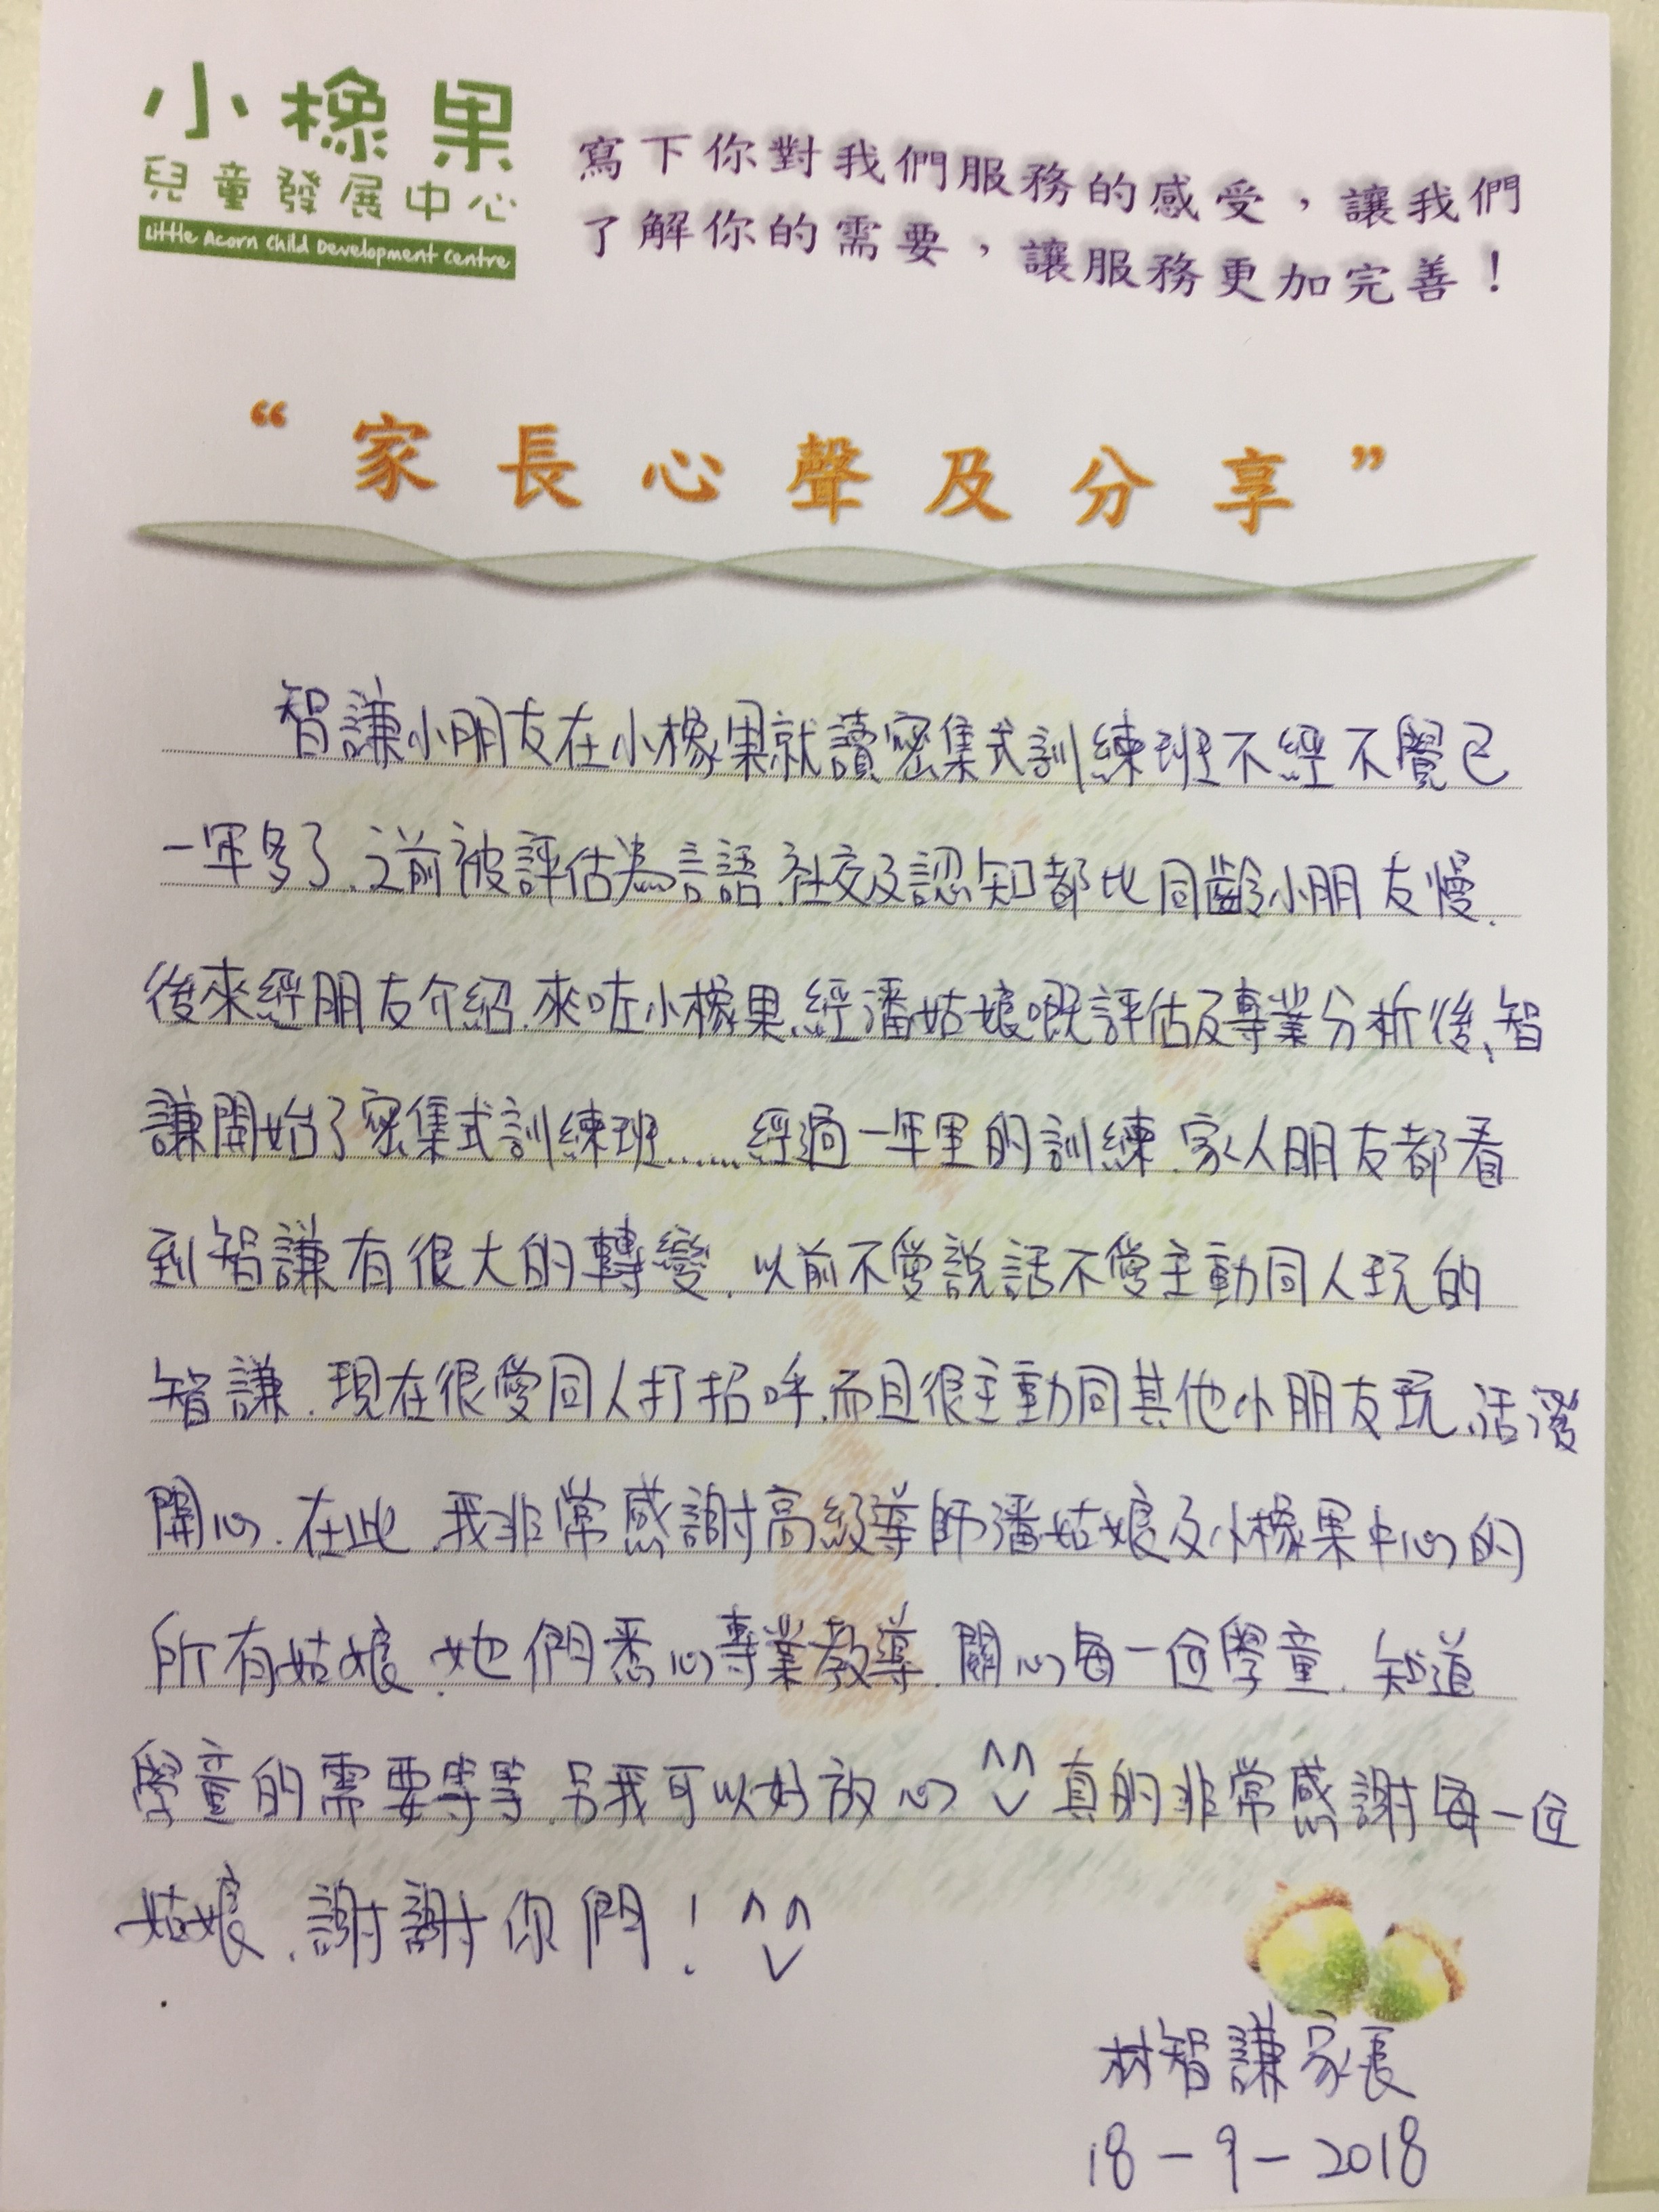 小橡果
兒童發展中心
Little Acorn Child Development Centre
寫下你對我們服務的感受，讓我們
了解你的需要，讓服務更加完善！
“家長心聲及分享”
智謙小朋友在小橡果就讀密集式訓練班不經不覺已
一年多了.之前被評估為言語.社交及認知都比同齡小朋友慢.
後來經朋友介紹.來咗小橡果.經潘姑娘嘅評估及專業分析後,智
謙開始了密集式訓練班......經過一年里的訓練.家人朋友都看
到智謙有很大的轉變.以前不愛說話不愛主動同人玩的
智謙.現在很愛同人打招呼.而且很主動同其他小朋友玩.活潑
開心.在此.我非常感謝高級導師潘姑娘及小橡果中心的
所有姑娘.她們悉心專業教導.關心每一位學童.知道
學童的需要等等.另我可以好放心 ^^ 真的非常感謝每一位
姑娘.謝謝你們! ^^
林智謙家長
18-9-2018